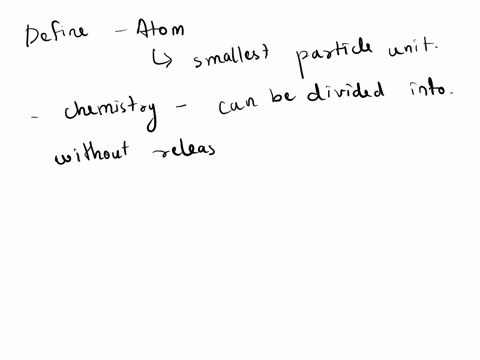 Define - Atom
↳ smallest particle unit.
- chemistry - can be divided into.
without releas